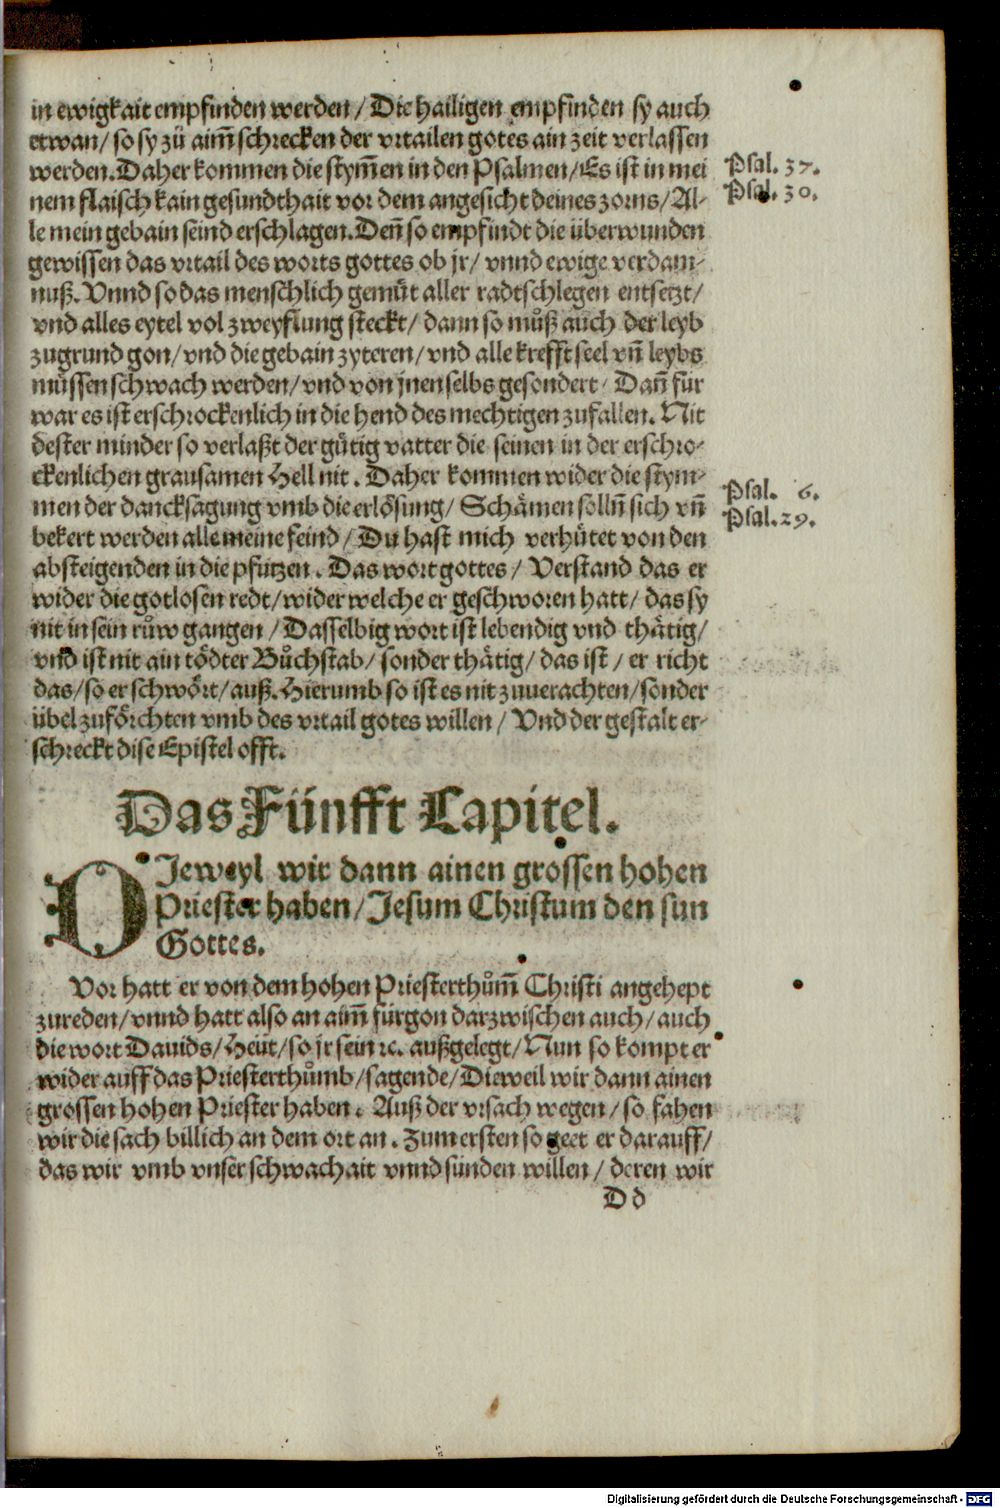 in ewigkait empfinden werden / Die hailigen empfinden sy auch
etwan / so sy zů aim̃ schrecken der vrtailen gotes ain zeit verlassen
werden. Daher kommen die stym̃en in den Psalmen / Es ist in mei
Psal. 37.
nem flaisch kain gesundthait vor dem angesicht deines zorns / Al-
Psal. 30.
le mein gebain seind erschlagen. Deñ so empfindt die überwunden
gewissen das vrtail des worts gottes ob jr / vnnd ewige verdam-
nuß. Vnnd so das menschlich gemüt aller radtschlegen entsetzt /
vnd alles eytel vol zweyflung steckt / dann so můß auch der leyb
zugrund gon / vnd die gebain zyteren / vnd alle krefft seel vñ leybs
müssen schwach werden / vnd von jnen selbs gesondert / Dañ für
war es ist erschrockenlich in die hend des mechtigen zufallen. Nit
dester minder so verlaßt der gütig vatter die seinen in der erschro-
ckenlichen grausamen Hell nit. Daher kommen wider die stym-
Psal. 6.
men der dancksagung vmb die erlösung / Schämen solln̄ sich vñ
Psal. 29.
bekert werden alle meine feind / Du hast mich verhütet von den
absteigenden in die pfützen. Das wort gottes / Verstand das er
wider die gotlosen redt / wider welche er geschworen hatt / das sy
nit in sein růw gangen / Dasselbig wort ist lebendig vnd thätig /
vnd ist nit ain tödter Bůchstab / sonder thätig / das ist / er richt
das / so er schwört / auß. Hierumb so ist es nit zuuerachten / sonder
übel zuförchten vmb des vrtail gotes willen / Vnd der gestalt er-
schreckt dise Epistel offt.
Das Fünfft Capitel.
DJeweyl wir dann ainen grossen hohen
Priester haben / Jesum Christum den sun
Gottes.
Vor hatt er von dem hohen Priesterthům̃ Christi angehept
zureden / vnnd hatt also an aim̃ fürgon darzwischen auch / auch
die wort Dauids / Heüt / so jr sein ꝛc. außgelegt / Nun so kompt er
wider auff das Priesterthůmb / sagende / Dieweil wir dann ainen
grossen hohen Priester haben. Auß der vrsach wegen / so fahen
wir die sach billich an dem ort an. Zum ersten so geet er darauff /
das wir vmb vnser schwachait vnnd sünden willen / deren wir
D d
Digitalisierung gefördert durch die Deutsche Forschungsgemeinschaft - DFG